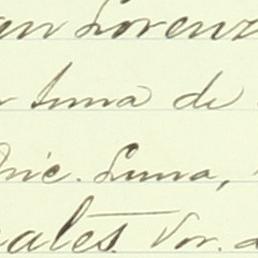 an Lorenz
luna de
nic. Luna,
ales. Vor. a